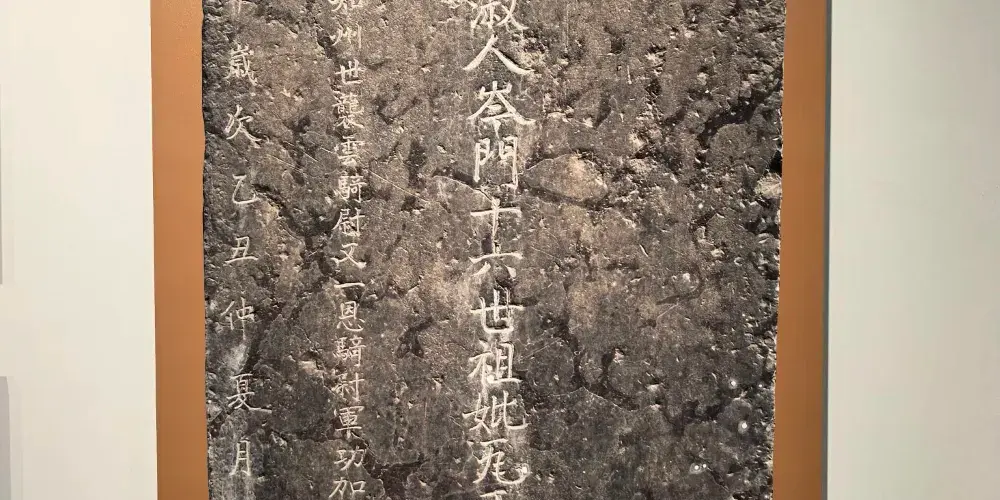 淑人岑門十六世祖妣
州世襲雲騎尉又一恩騎尉軍功加
歲次乙丑仲夏月